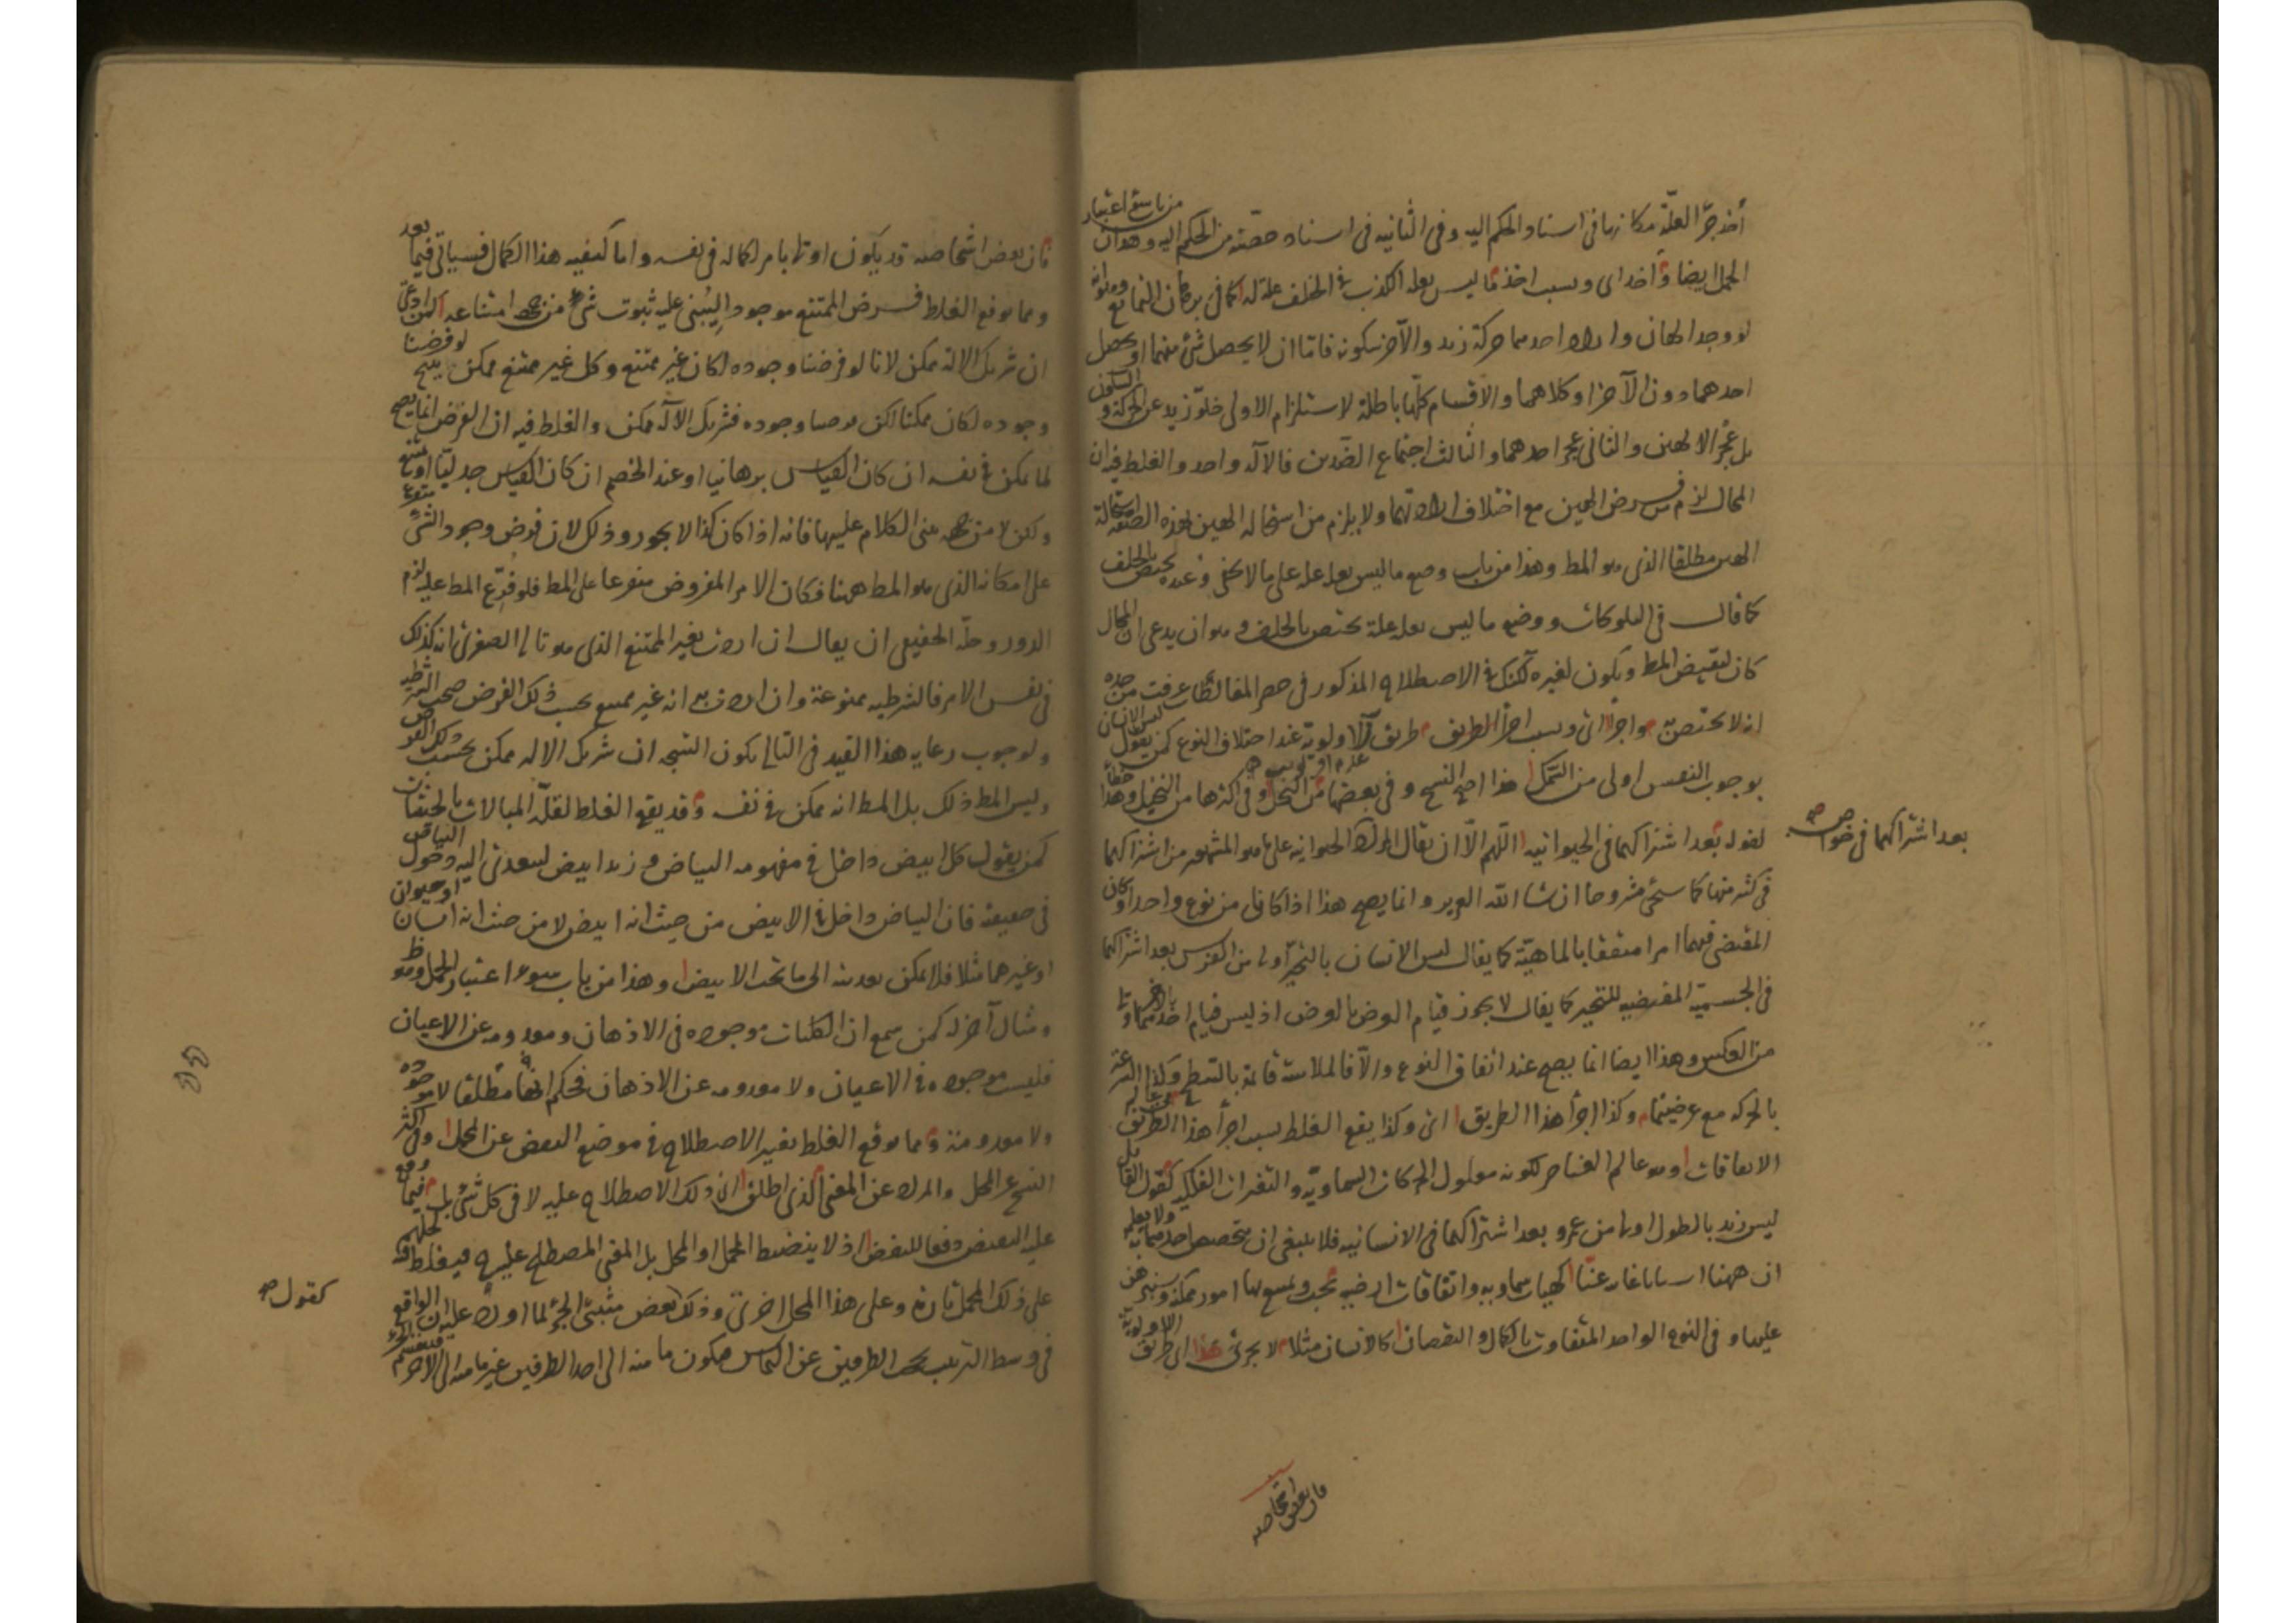 أخذ جزء العلة مكانها في اسناد الحكم اليه وفي الثانيه في اسناد حصته من الحكم اليه وهو ان من باب سوء اعتبار
الحمل ايضا وأخذ اى وبسبب اخذ ما ليس بعلة الكذب في الخلف علة له كما في برهان التمانع وهو انه
لو وجد الهان واراد احدهما حركة زيد والآخر سكونه فاما ان لا يحصل شئ منهما او يحصل
احدهما دون الآخر او كلاهما والاقسام كلها باطلة لاستلزام الاولى خلو زيد عن الحركة والسكون
بل عجز الالهين والثانى عجز احدهما والثالث اجتماع الضدين فالآله واحد والغلط فيه ان
المحال لزم من فرض الهين مع اختلاف ارادتهما ولا يلزم من استحاله الهين لهذه الصفة استحالة
الهين مطلقا الذى هو المط وهذا من باب وضع ما ليس بعلة علة على ما لا يخفى وعده يختص بالخلف
كما قال في التلويحات ووضع ما ليس بعلة علة يختص بالخلف وهو ان يدعى ان المحال
كان لنقيض المط ويكون لغيره لكنك في الاصطلاح المذكور في حصر المغالطات عرفت من حده
انه لا يختص به واجراء اى وبسبب اجراء الطريق طريق الاولوية عند اختلاف النوع كمن يقول ليس الانسان
بوجوب النفس اولى من السمك هذا اصح النسخ وفي بعضها من النحل وفي اكثرها من النخيل وهذا خطأ
لقوله بعد اشتراكهما في الحيوانيه اللهم الا ان يقال المراد الحيوانيه على ما هو المشهور من اشتراكهما
بعد اشتراكهما في خواص صح
في كثير منها كما سيجئ مشروحا ان شا الله العزيز وانما يصح هذا اذا كانا من نوع واحد او كان
المقتضى فيهما امرا متفقا بالماهية كما يقال ليس الانسان بالتحيز اولى من الفرس بعد اشتراكهما
في الجسمية المقتضيه للتحيز كما يقال لا يجوز قيام العرض بالعرض اذ ليس قيام احدهما بالآخر اولى
من العكس وهذا ايضا انما يصح عند اتفاق النوع والا فالملاسة قائمة بالسطح وكذا السرعة
بالحركه مع عرضيتهما وكذا اجراء هذا الطريق اى وكذا يقع الغلط بسبب اجراء هذا الطريق في عالم
الاتفاقات وهو عالم العناصر لكونه معلول الحركات السماوية والتغيرات الفلكيه كقول القائل
ليس زيد بالطول اولى من عمرو بعد اشتراكهما في الانسانيه فلا ينبغى ان يتخصص احدهما به ولا يعلم
ان ههنا اسبابا غايبة عنا كهيات سماويه واتفاقات ارضيه يجب ويمتنع بها امور ممكنة وسنبرهن
عليها وفي النوع الواحد المتفاوت بالكمال والنقصان كالانسان مثلا لا يجرى هذا اى طريق الاولوية
فان بعض اشخاصه
فان بعض اشخاصه قد يكون اولى بامر لكماله في نفسه واما كيفيه هذا الكمال فسياتى فيما بعد
ومما يوقع الغلط فرض الممتنع موجودا ليبنى عليه ثبوت شئ من جهه امتناعه كمن ادعى
ان شريك الاله ممكن لانا لو فرضنا وجوده لكان غير ممتنع وكل غير ممتنع ممكن ينتج لو فرضنا
وجوده لكان ممكنا لكن فرضنا وجوده فشريك الآله ممكن والغلط فيه ان الفرض انما يصح
لما يمكن في نفسه ان كان القياس برهانيا او عند الخصم ان كان القياس جدليا او يمتنع
ولكن لا من جهه يبنى الكلام عليها فانه اذا كان كذا لا يجوز وذلك لان فرض وجود الشئ متفرع
على امكانه الذى هو المط ههنا فكان الامر المفروض متفرعا على المط فلو فرع المط عليه لزم
الدور وحله الحقيقى ان يقال ان اردت بغير الممتنع الذى هو تالى الصغرى انه كذلك
في نفس الامر فالشرطيه ممنوعة وان اردت به انه غير ممتنع بحسب ذلك الفرض صحت الشرطيه
ولوجوب رعايه هذا القيد في التالى يكون النتيجه ان شريك الاله ممكن بحسب ذلك الفرض
وليس المط ذلك بل المط انه ممكن في نفسه وقد يقع الغلط لقلة المبالات بالحيثيات
كمن يقول كل ابيض داخل في مفهومه البياض وزيد ابيض ليتعدى اليه دخول البياض
في حقيقته فان البياض داخل في الابيض من حيث انه ابيض لا من حيث انه انسان او حيوان
او غيرهما مثلا فلا يمكن تعديته الى ما تحت الابيض وهذا من باب سوء اعتبار الحمل وهو ظ
ومثال آخر له كمن سمع ان الكليات موجوده في الاذهان ومعدومه عن الاعيان
فليست موجوده في الاعيان ولا معدومه عن الاذهان فحكم انها مطلقا لا موجوده
ولا معدومة ومما يوقع الغلط تغيير الاصطلاح في موضع النقض عن المحمل وفي اكثر
النسخ عن المحل والمراد عن المعنى الذى اطلق ذلك الاصطلاح عليه لا في كل شئ بل فيما وقع
عليه النقض دفعا للنقض اذ لا ينضبط المحمل او المحل بل المعنى المصطلح عليه فيغلط لحملهم
على ذلك المحمل تارة وعلى هذا المحل اخرى وذلك كقول بعض مثبتى الجزء لما اورد عليه ان الواقع
كقول صح
في وسط الترتيب يحجب الطرفين عن التماس فيكون ما منه الى احد الطرفين غير ما منه الى الآخر فينقسم الجزء